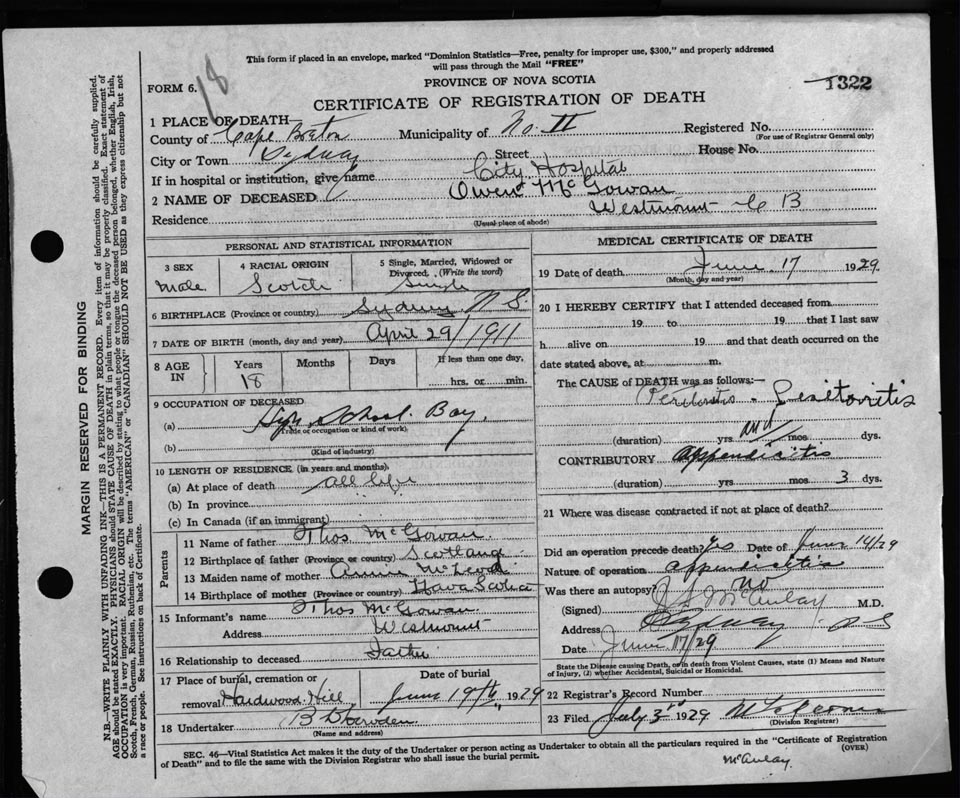 This form if placed in an envelope, marked "Dominion Statistics—Free, penalty for improper use, $300," and properly addressed
will pass through the Mail "FREE"
PROVINCE OF NOVA SCOTIA
FORM 6.
18
1322
CERTIFICATE OF REGISTRATION OF DEATH
1 PLACE OF DEATH
County of Cape Breton Municipality of No. II Registered No.
(For use of Registrar General only)
City or Town Sydney Street House No.
If in hospital or institution, give name City Hospital
2 NAME OF DECEASED Owen McGowan
Residence Westmount C B
(Usual place of abode)
PERSONAL AND STATISTICAL INFORMATION
3 SEX Male
4 RACIAL ORIGIN Scotch
5 Single, Married, Widowed or Divorced, (Write the word) Single
6 BIRTHPLACE (Province or country) Sydney N S.
7 DATE OF BIRTH (month, day and year) April 29/1911
8 AGE IN Years 18 Months Days If less than one day, hrs. or min.
9 OCCUPATION OF DECEASED
(a) High School Boy.
(Trade or occupation or kind of work)
(b)
(Kind of industry)
10 LENGTH OF RESIDENCE (in years and months).
(a) At place of death all life
(b) In province
(c) In Canada (if an immigrant)
Parents
11 Name of father Thos McGowan
12 Birthplace of father (Province or country) Scotland
13 Maiden name of mother Annie McLeod
14 Birthplace of mother (Province or country) Nova Scotia
15 Informant's name Thos McGowan
Address Westmount
16 Relationship to deceased Father
17 Place of burial, cremation or removal Hardwood Hill Date of burial June 19th 1929
18 Undertaker
(Name and address)
MEDICAL CERTIFICATE OF DEATH
19 Date of death June 17 1929
(Month, day and year)
20 I HEREBY CERTIFY that I attended deceased from
19 to 19 that I last saw
h alive on 19 and that death occurred on the
date stated above, at m.
The CAUSE of DEATH was as follows:—
and
(duration) yrs mos dys.
CONTRIBUTORY appendicitis
(duration) yrs. mos. 3 dys.
21 Where was disease contracted if not at place of death?
Did an operation precede death? Yes Date of June 14/29
Nature of operation appendicitis
Was there an autopsy? no
(Signed) McAulay M.D.
Address Sydney N S
Date June 17/29
State the Disease causing Death, or in death from Violent Causes, state (1) Means and Nature
of Injury, (2) whether Accidental, Suicidal or Homicidal.
22 Registrar's Record Number
23 Filed July 3rd 1929
(Division Registrar)
SEC. 46—Vital Statistics Act makes it the duty of the Undertaker or person acting as Undertaker to obtain all the particulars required in the "Certificate of Registration
of Death" and to file the same with the Division Registrar who shall issue the burial permit.
(OVER)
McAulay.
MARGIN RESERVED FOR BINDING
N.B.—WRITE PLAINLY WITH UNFADING INK—THIS IS A PERMANENT RECORD. Every item of information should be carefully supplied.
AGE should be stated EXACTLY. PHYSICIANS should STATE CAUSE OF DEATH in plain terms, so that it may be properly classified. Exact statement of
OCCUPATION is very important. RACIAL ORIGIN will be described by stating to what people or tongue the deceased person belonged, whether English, Irish,
Scotch, French, German, Russian, Ruthenian, etc. The terms "AMERICAN" or "CANADIAN" SHOULD NOT BE USED as they express citizenship but not
a race or people. See instructions on back of Certificate.